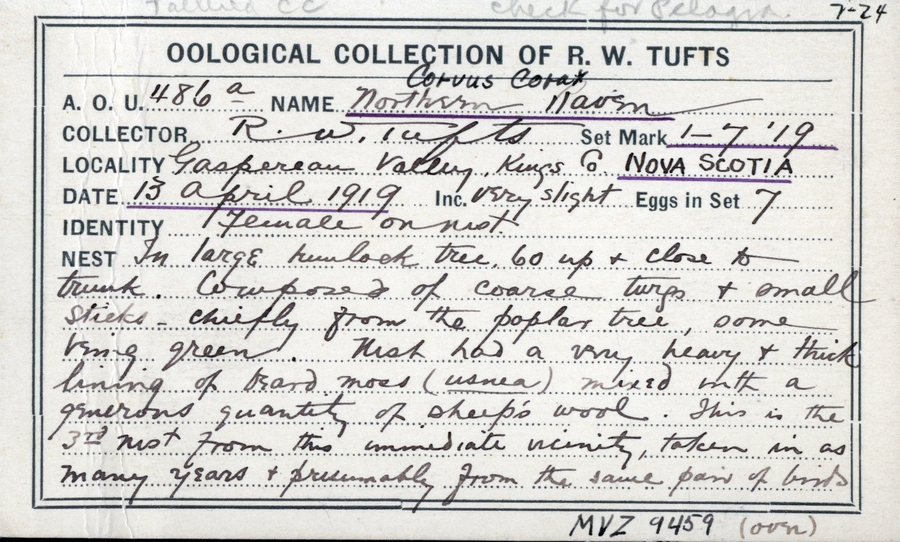 Tallied CC check for Pelagin. 7-24
OOLOGICAL COLLECTION OF R. W. TUFTS
Corvus Corax
A. O. U. 486 a NAME Northern Raven
COLLECTOR R. W. Tufts Set Mark 1-7 '19
LOCALITY Gaspereau Valley, Kings Co NOVA SCOTIA
DATE 13 April 1919 Inc. very slight Eggs in Set 7
IDENTITY Female on nest
NEST In large hemlock tree, 60 up & close to
trunk. Composed of coarse twigs & small
sticks - chiefly from the poplar tree, some
being green. Nest had a very heavy & thick
lining of beard moss (usnea) mixed with a
generous quantity of sheep's wool. This is the
3rd nest from this immediate vicinity, taken in as
many years & presumably from the same pair of birds
MVZ 9459 (over)